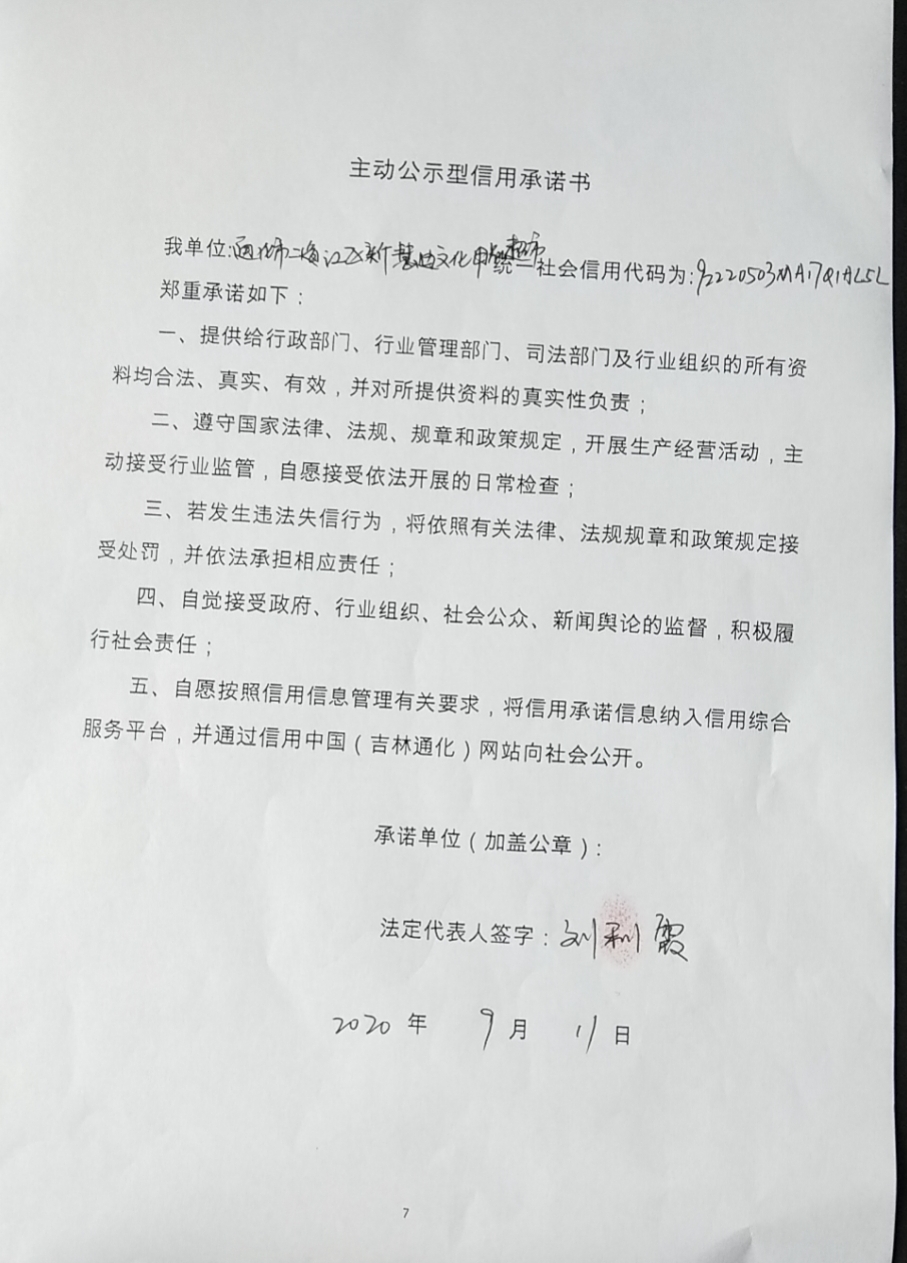 主动公示型信用承诺书
我单位:通化市二道江区新慧迪文化用品超市统一社会信用代码为:92220503MA17Q1AL5L
郑重承诺如下：
一、提供给行政部门、行业管理部门、司法部门及行业组织的所有资
料均合法、真实、有效，并对所提供资料的真实性负责；
二、遵守国家法律、法规、规章和政策规定，开展生产经营活动，主
动接受行业监管，自愿接受依法开展的日常检查；
三、若发生违法失信行为，将依照有关法律、法规规章和政策规定接
受处罚，并依法承担相应责任；
四、自觉接受政府、行业组织、社会公众、新闻舆论的监督，积极履
行社会责任；
五、自愿按照信用信息管理有关要求，将信用承诺信息纳入信用综合
服务平台，并通过信用中国（吉林通化）网站向社会公开。
承诺单位（加盖公章）：
法定代表人签字：刘利霞
2020 年 9 月 11 日
7